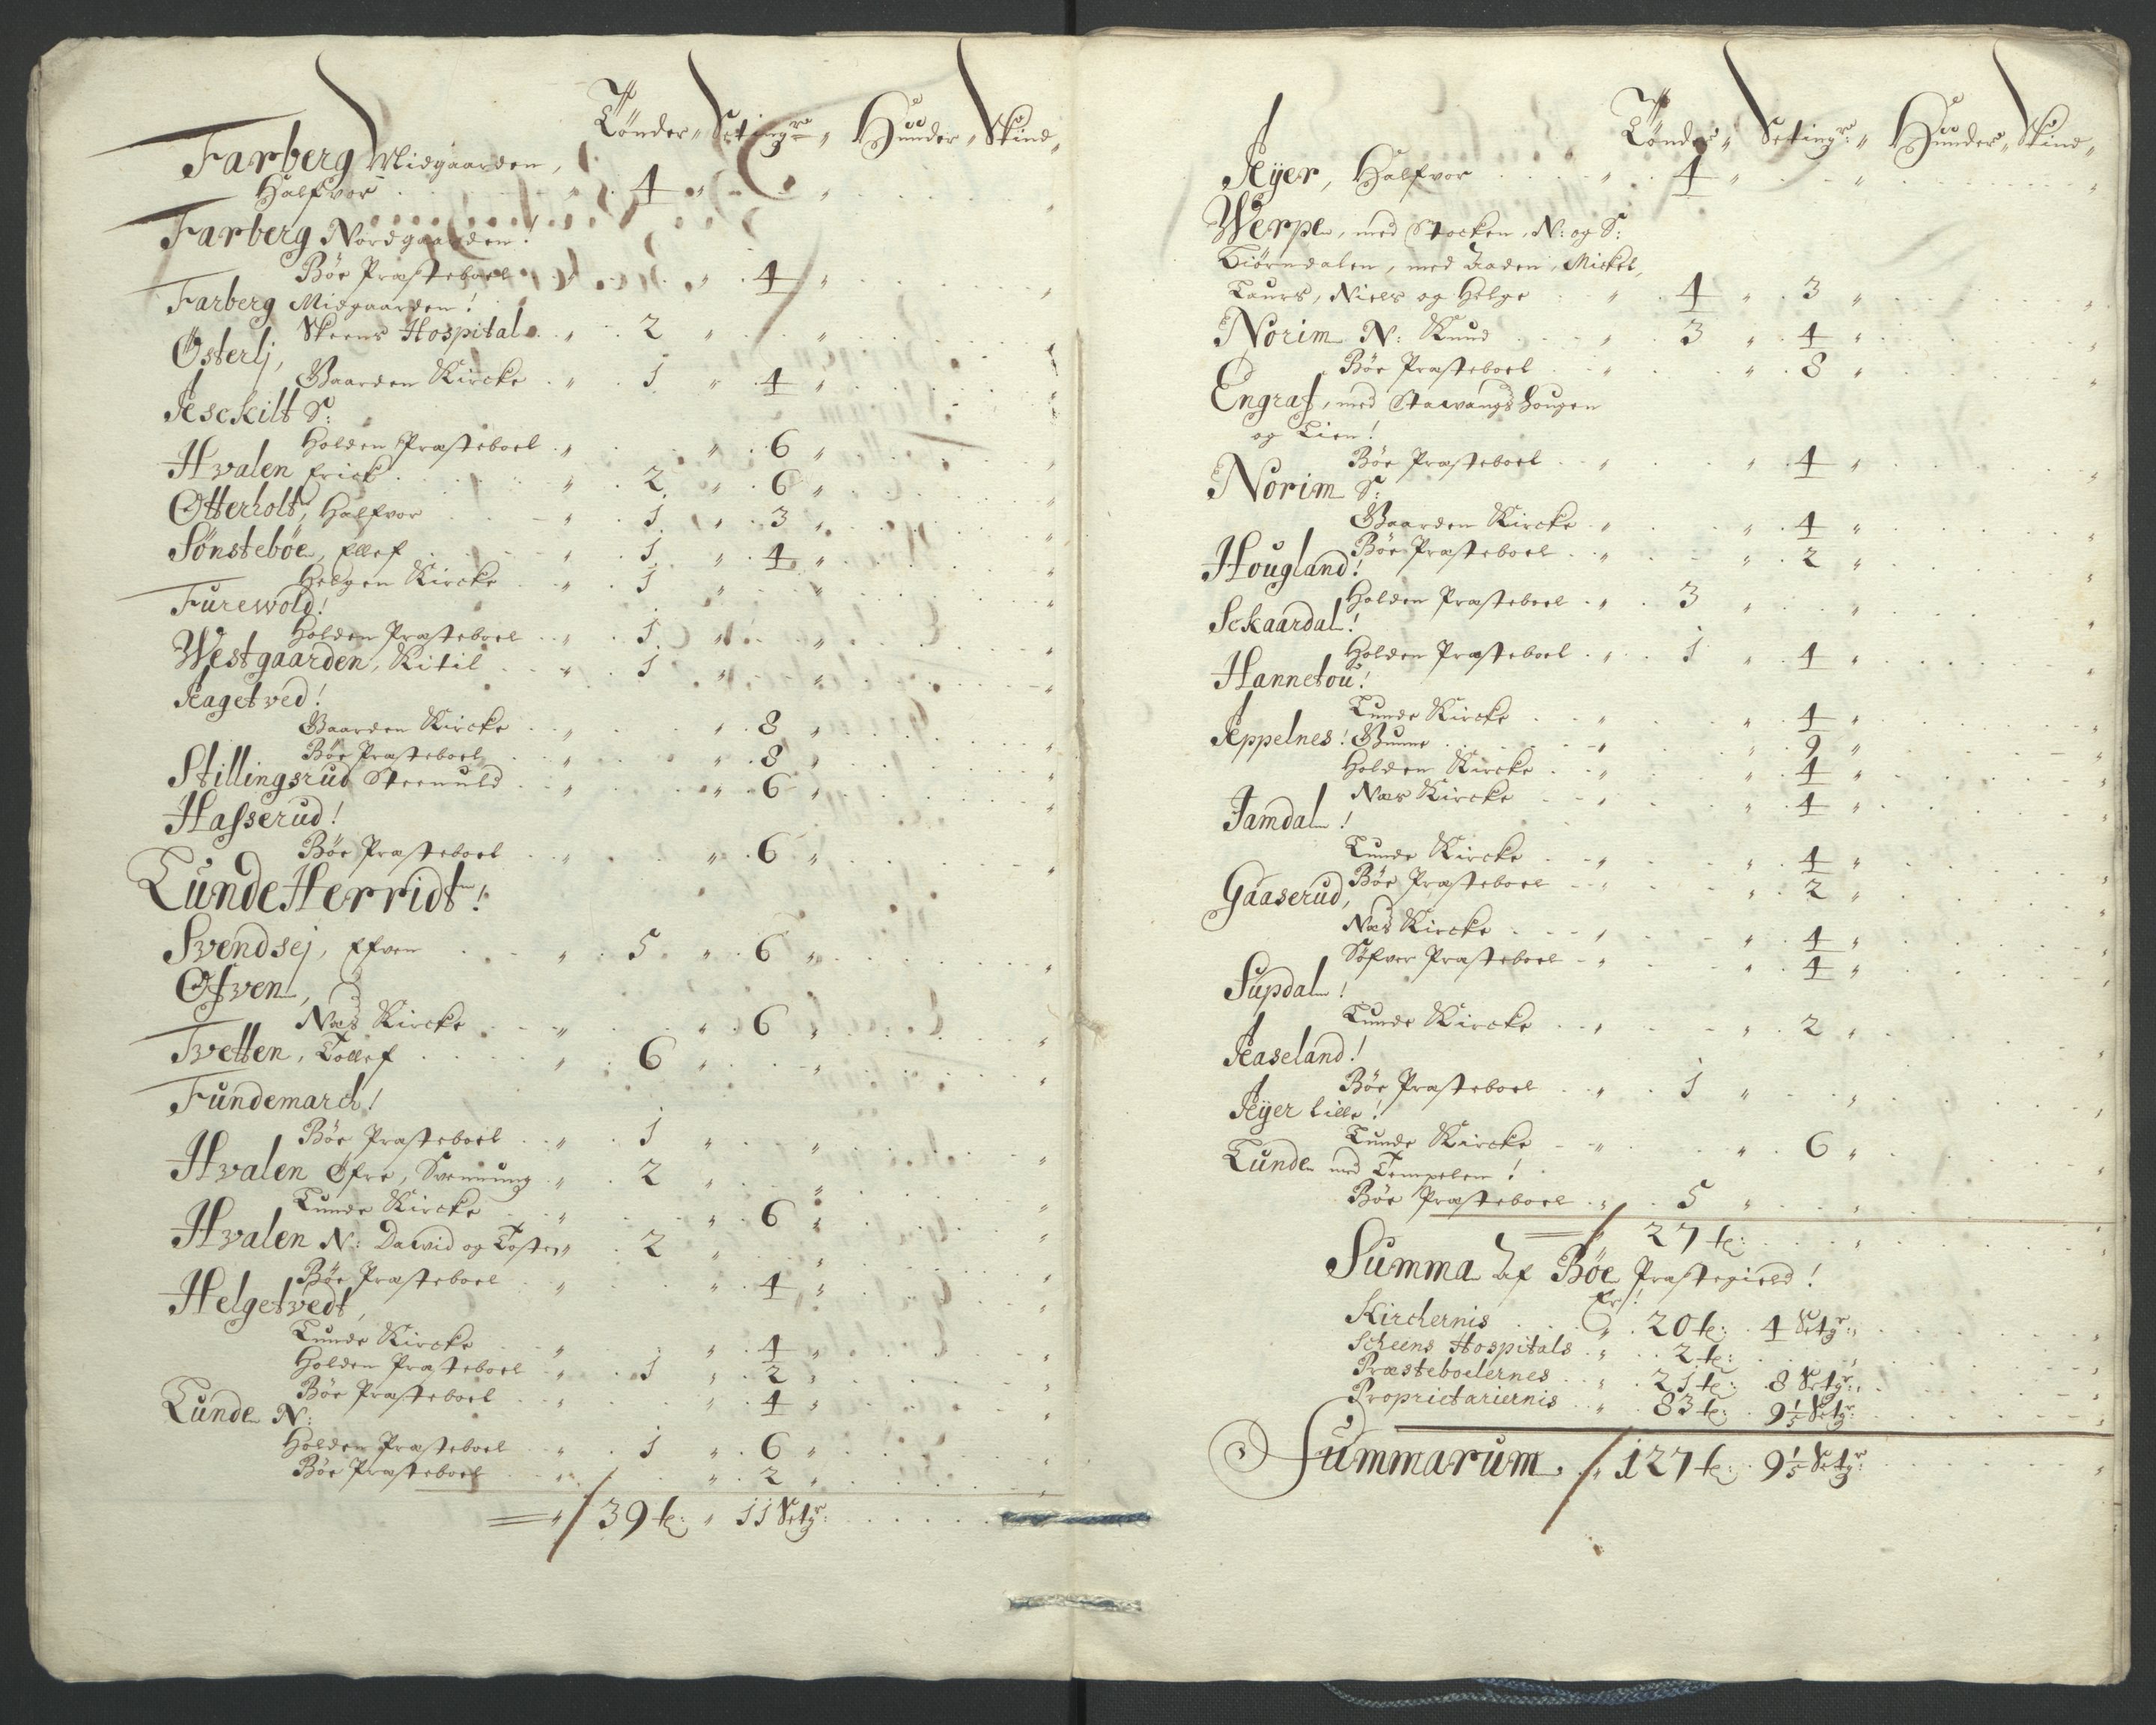 Tönder " Setingr " Huuder " Skind "
Farberg Midgaarden,
Halfvor . . . " . 4 " . - . "
Farberg Nordgaarden!
Böe Præsteboel . " . . " . 4 "
Farberg Midgaarden!
Skeens Hospital . " . 2 " . . "
Österlj,
Gaarden Kircke . " . 1 " . 4 "
Aeschilt S:
Holden Præsteboel . " . . " . 6 "
Hvalen Erick . . " . 2 " . 6 "
Otterholt, Halfvor . . " . 1 " . 3 "
Sönsteböe, Ellef . . " . 1 " . 4 "
Helgen Kircke . " . 1 " . . "
Furewold!
Holden Præsteboel . " . 1 " . . "
Westgaarden, Kitil . . " . 1 " . . "
Aagetved!
Gaarden Kircke . " . . " . 8 "
Böe Præsteboel . " . . " . 8 "
Stillingsrud Steenuld . " . . " . 6 "
Hasserud!
Böe Præsteboel . " . . " . 6 "
Lunde Herridt!
Svendsej, Efven . . " . 5 " . 6 "
Ofven,
Næs Kircke . . " . . " . 6 "
Tvetten, Tollef . . " . 6 " . . "
Fundemarch!
Böe Præsteboel . " . 1 " . . "
Hvalen Öfre, Svennung . " . 2 " . . "
Lunde Kircke . " . . " . 6 "
Hvalen N: David og Tosten " . 2 " . . "
Böe Præsteboel . " . . " . 4 "
Helgetvedt,
Lunde Kircke . " . . " . 4 "
Holden Præsteboel . " . 1 " . 2 "
Böe Præsteboel . " . . " . 4 "
Lunde N:
Holden Præsteboel . " . 1 " . 6 "
Böe Præsteboel . " . . " . 2 "
= " / 39 t: " 11 Setgr:
Tönder " Setingr: " Huuder " Skind "
Ajer, Halfvor . . . " . 4 " . - "
Werpe, med Stocken, N: og S:
Biörndalen, med Haden, Mickel,
Laurs, Niels og Helge . " . 4 " . 3 "
Norim N: Knud . . " . 3 " . 4 "
Böe Præsteboel . " . . " . 8 "
Engraf, med Stavangs Hougen
og Lien!
Böe Præsteboel . " . . " . 4 "
Norim S:
Gaarden Kircke . " . . " . 4 "
Böe Præsteboel . " . . " . 2 "
Hougland!
Holden Præsteboel . " . 3 " . . "
Sckaardal!
Holden Præsteboel . " . 1 " . 4 "
Hannetou!
Lunde Kircke . " . . " . 4 "
Aeppelnes! Gunne . . " . . " . 9 "
Holden Kircke . " . . " . 4 "
Næs Kircke . " . . " . 4 "
Jamdal!
Lunde Kircke . " . . " . 4 "
Böe Præsteboel . " . . " . 2 "
Gaaserud,
Næs Kircke . " . . " . 4 "
Söfver Præsteboel . " . . " . 4 "
Supdal!
Lunde Kircke . " . . " . 2 "
Aaseland!
Böe Præsteboel . " . 1 " . . "
Ajer Lille!
Lunde Kircke . " . . " . 6 "
Lunde med Tempelen!
Böe Præsteboel . " . 5 " . . "
= / 27 t: . . "
Summa af Böe Præstegield!
Er!
Kirchernis . . " . 20 t: . 4 Setgr:
Scheens Hospitals . " . 2 t: . . "
Præsteboelernes . " . 21 t: . 8 Setgr:
Proprietariernis . " . 83 t: . 9 1/5 Setgr:
Summarum. " / 127 t: . 9 1/5 Setgr: